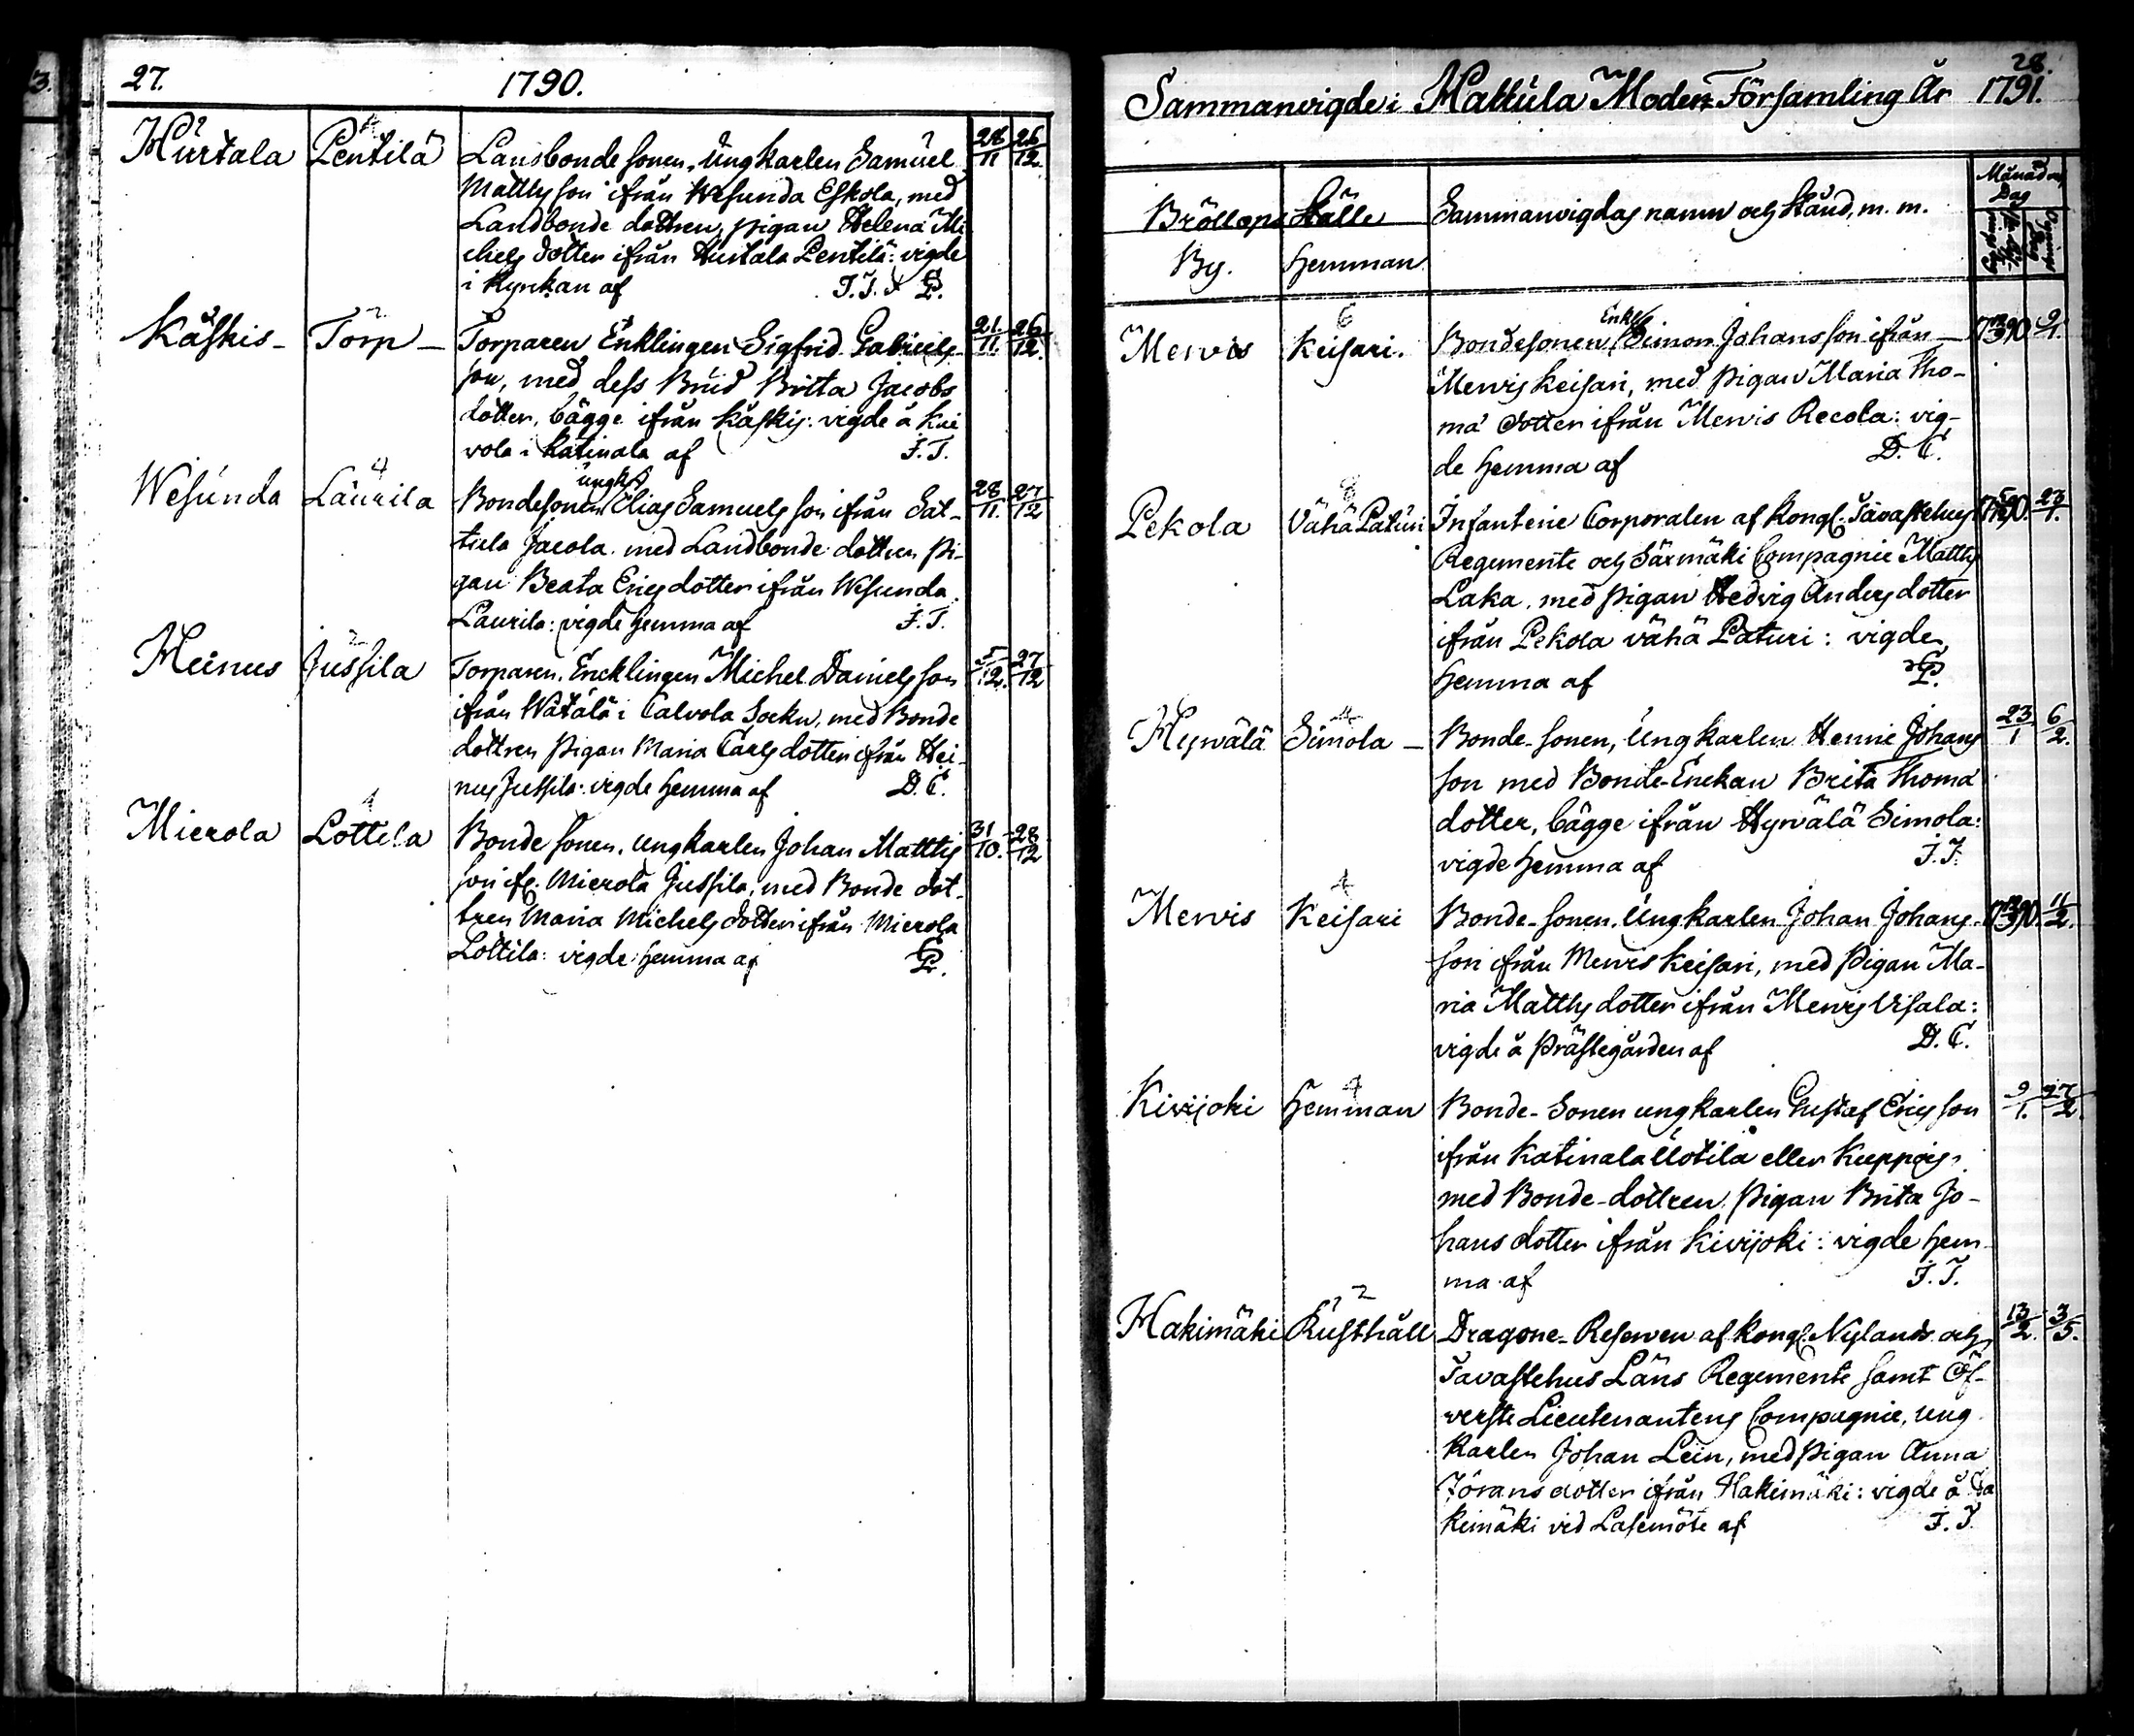 27. 1790.
Hurtala Pentilä Lansbonde sonen, Ungkarlen Samuel 28/11 26/12
Matthsson ifrån Wesunda Eskola, med
Landbonde dottren, pigan Helena Mi
chels dotter ifrån Hurtala Pentilä: vigde
i Kyrkan af J. T.
Käskis Torp Torparen Enklingen Sigfrid Gabriels- 21/11 26/12
son, med dess Brud Britta Jacobs
dotter, bägge ifrån Käskis: vigde å Kui
vola i Katinala af J. T.
Wesunda Laurila Bondesonen ungk. Elias Samuelsson ifrån Sat- 28/11 27/12
tula Jacola. med Landbonde dottren Pi-
gan Beata Ericsdotter ifrån Wesunda
Laurila: vigde hemma af J. T.
Heinus Jussila Torparen. Encklingen Michel Danielsson 5/12 27/12
ifrån Wätälä i Calvola Sockn, med Bonde
dottren pigan Maria Carlsdotter ifrån Hei-
nus Jussila: vigde hemma af D. C.
Mierola Lottila Bonde sonen. ungkarlen Johan Matths 31/10 28/12
son ifr. Mierola Jussila, med Bonde dot-
tren Maria Michelsdotter ifrån Mierola
Lottila: vigde hemma af
28.
Sammanvigde i Hattula Moder Församling År 1791.
Bröllops Ställe Sammanvigdas namn och Stånd, m. m. Månad och
Dag
By. Hemman
6
Merwis Keisari. Bondesonen Enkl. Simon Johansson ifrån 1790 9/1.
Merwis Keisari, med pigan Maria Tho-
mæ dotter ifrån Merwis Recola: vig-
de hemma af D. C.
8
Pekola Vähä Paturi Infanterie Corporalen af Kongl. Tavastehus 1790. 23/1.
Regemente och Säxmäki Compagnie Matths
Laka, med pigan Hedvig Andersdotter
ifrån Pekola vähä Paturi: vigde
hemma af
4
Hyrwälä Simola Bonde-sonen, Ungkarlen Henric Johans 23/1 6/2.
son med Bonde-Enckan Brita Thomæ
dotter, bägge ifrån Hyrvälä Simola:
vigde hemma af J. T.
4
Merwis Keisari Bonde-sonen. Ungkarlen Johan Johans- 1790. 11/2.
son ifrån Merwis Keisari, med pigan Ma-
ria Matthsdotter ifrån Merwis Uisala:
vigde å Prästegården af D. C.
4
Kivijoki Hemman Bonde-Sonen ungkarlen Gustaf Ericsson 9/1. 27/2.
ifrån Katinala Uotila eller Kuppois,
med Bonde-dottren, pigan Brita Jo-
hans dotter ifrån Kivijoki: vigde hem-
ma af J. T.
2
Hakimäki Rusthåll Dragone-Reserven af Kongl. Nylands och 13/2. 3/5.
Tavastehus Läns Regemente samt Öf-
verste Lieutenantens Compagnie, ung
karlen Johan Lein, med pigan Anna
Jörans dotter ifrån Hakimäki: vigde å Ha
kimäki vid Läsemöte af J. T.